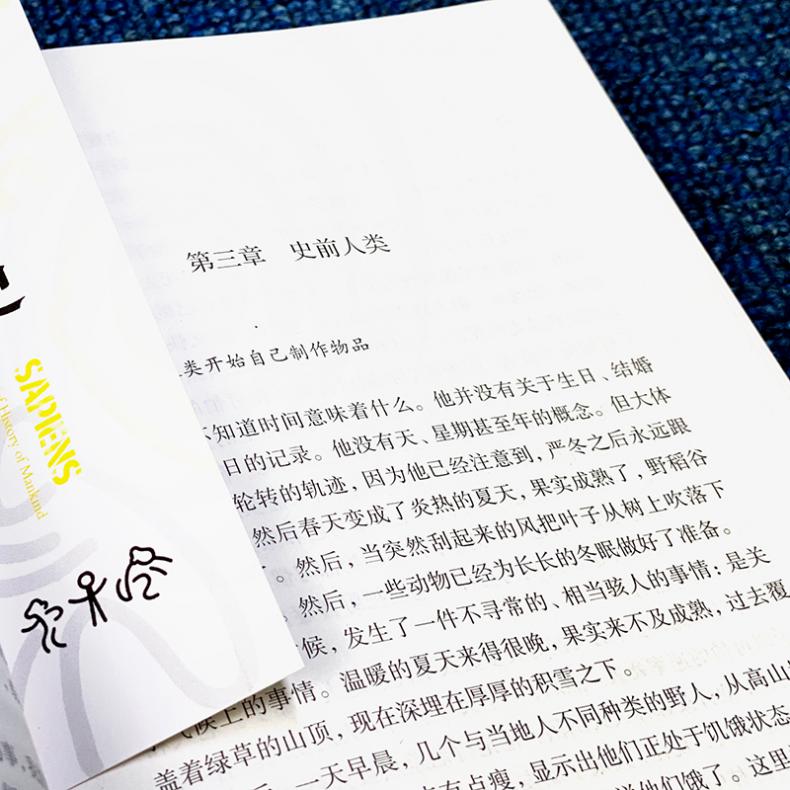 SAPIENS
of History of Mankind
第三章 史前人类
类开始自己制作物品
不知道时间意味着什么。他并没有关于生日、结婚
日的记录。他没有天、星期甚至年的概念。但大体
轮转的轨迹，因为他已经注意到，严冬之后永远跟
然后春天变成了炎热的夏天，果实成熟了，野稻谷
。然后，当突然刮起来的风把叶子从树上吹落下
。然后，一些动物已经为长长的冬眠做好了准备。
候，发生了一件不寻常的、相当骇人的事情；是关
气候上的事情。温暖的夏天来得很晚，果实来不及成熟，过去覆
盖着绿草的山顶，现在深埋在厚厚的积雪之下。
一天早晨，几个与当地人不同种类的野人，从高山
有点瘦，显示出他们正处于饥饿状态
他们饿了。这里